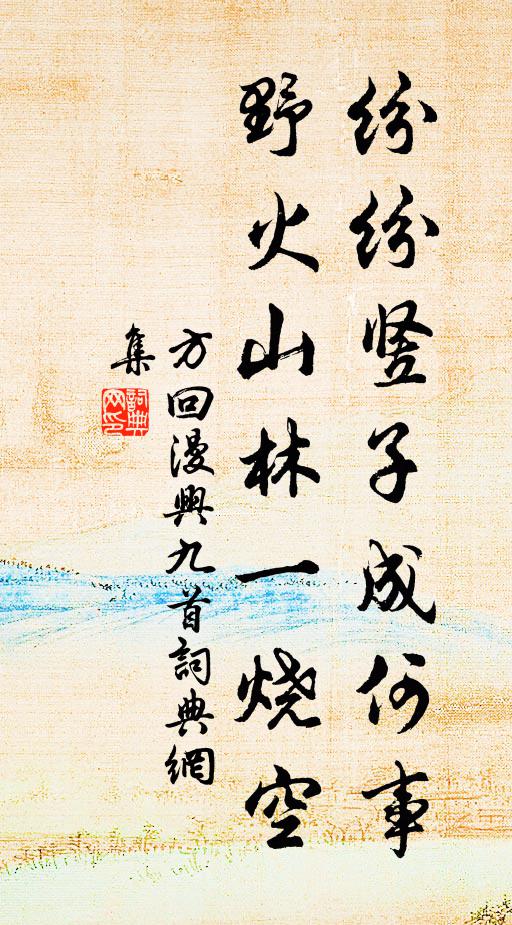 纷纷竖子成何事
野火山林一烧空
方回漫興九首詞典網
集
詞典
网印